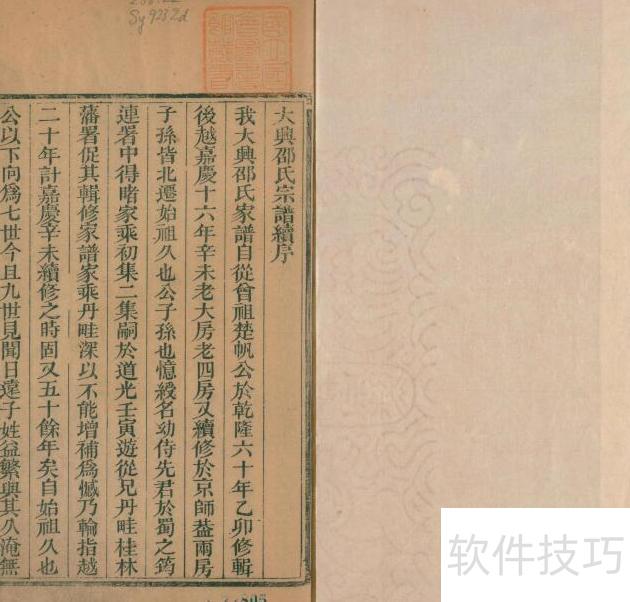 Sy923Zd
大興邵氏宗譜續序
我大興邵氏家譜自從曾祖楚帆公於乾隆六十年乙卯修輯
後越嘉慶十六年辛未老大房老四房又續修於京師葢兩房
子孫皆北遷始祖久也公子孫也憶綬名幼侍先君於蜀之筠
連署中得睹家乘初集二集嗣於道光壬寅遊從兄丹畦桂林
藩署促其輯修家譜家乘丹畦深以不能增補爲憾乃輪指越
二十年計嘉慶辛未續修之時固又五十餘年矣自始祖久也
公以下向爲七世今且九世見聞日遠子姓益繁與其久淹無
软件技巧